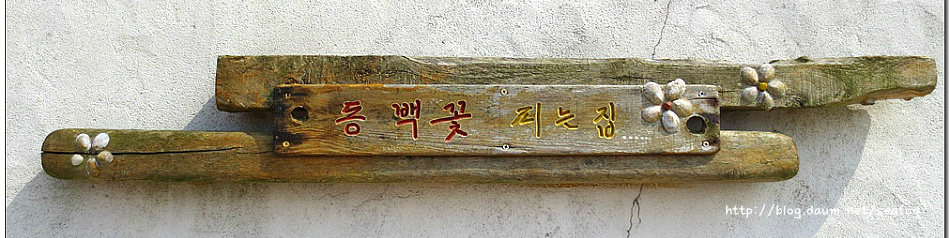 동백꽃 피는집
http://blog.daum.net/seatog